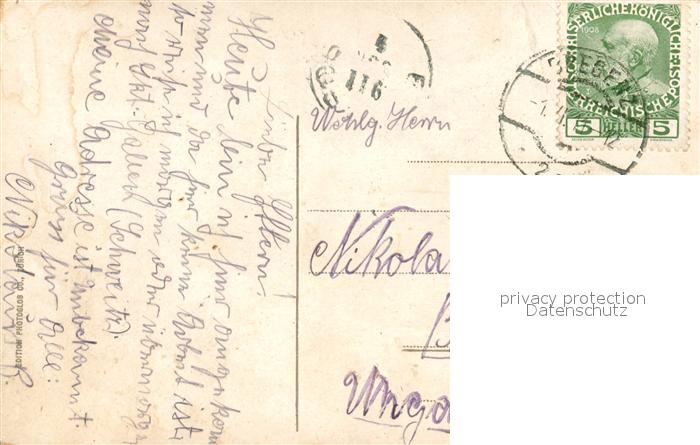 Liebe Eltern!
Heute bin ich hier angekom
men und da hier keine Arbeit ist,
so reise ich morgen oder übermorgen
nach Skt. Gallen (Schweitz).
Meine Adresse ist unbekannt.
Gruss für Alle:
Nikolaus
EDITION PHOTOGLOB CO., ZÜRICH
116
Wohlg. Herrn
Nikola
B
Unga
KAISERLICHE KÖNIGLICHE
1908
ÖSTERREICHISCHE POST
5 HELLER 5
BREGENZ
privacy protection
Datenschutz